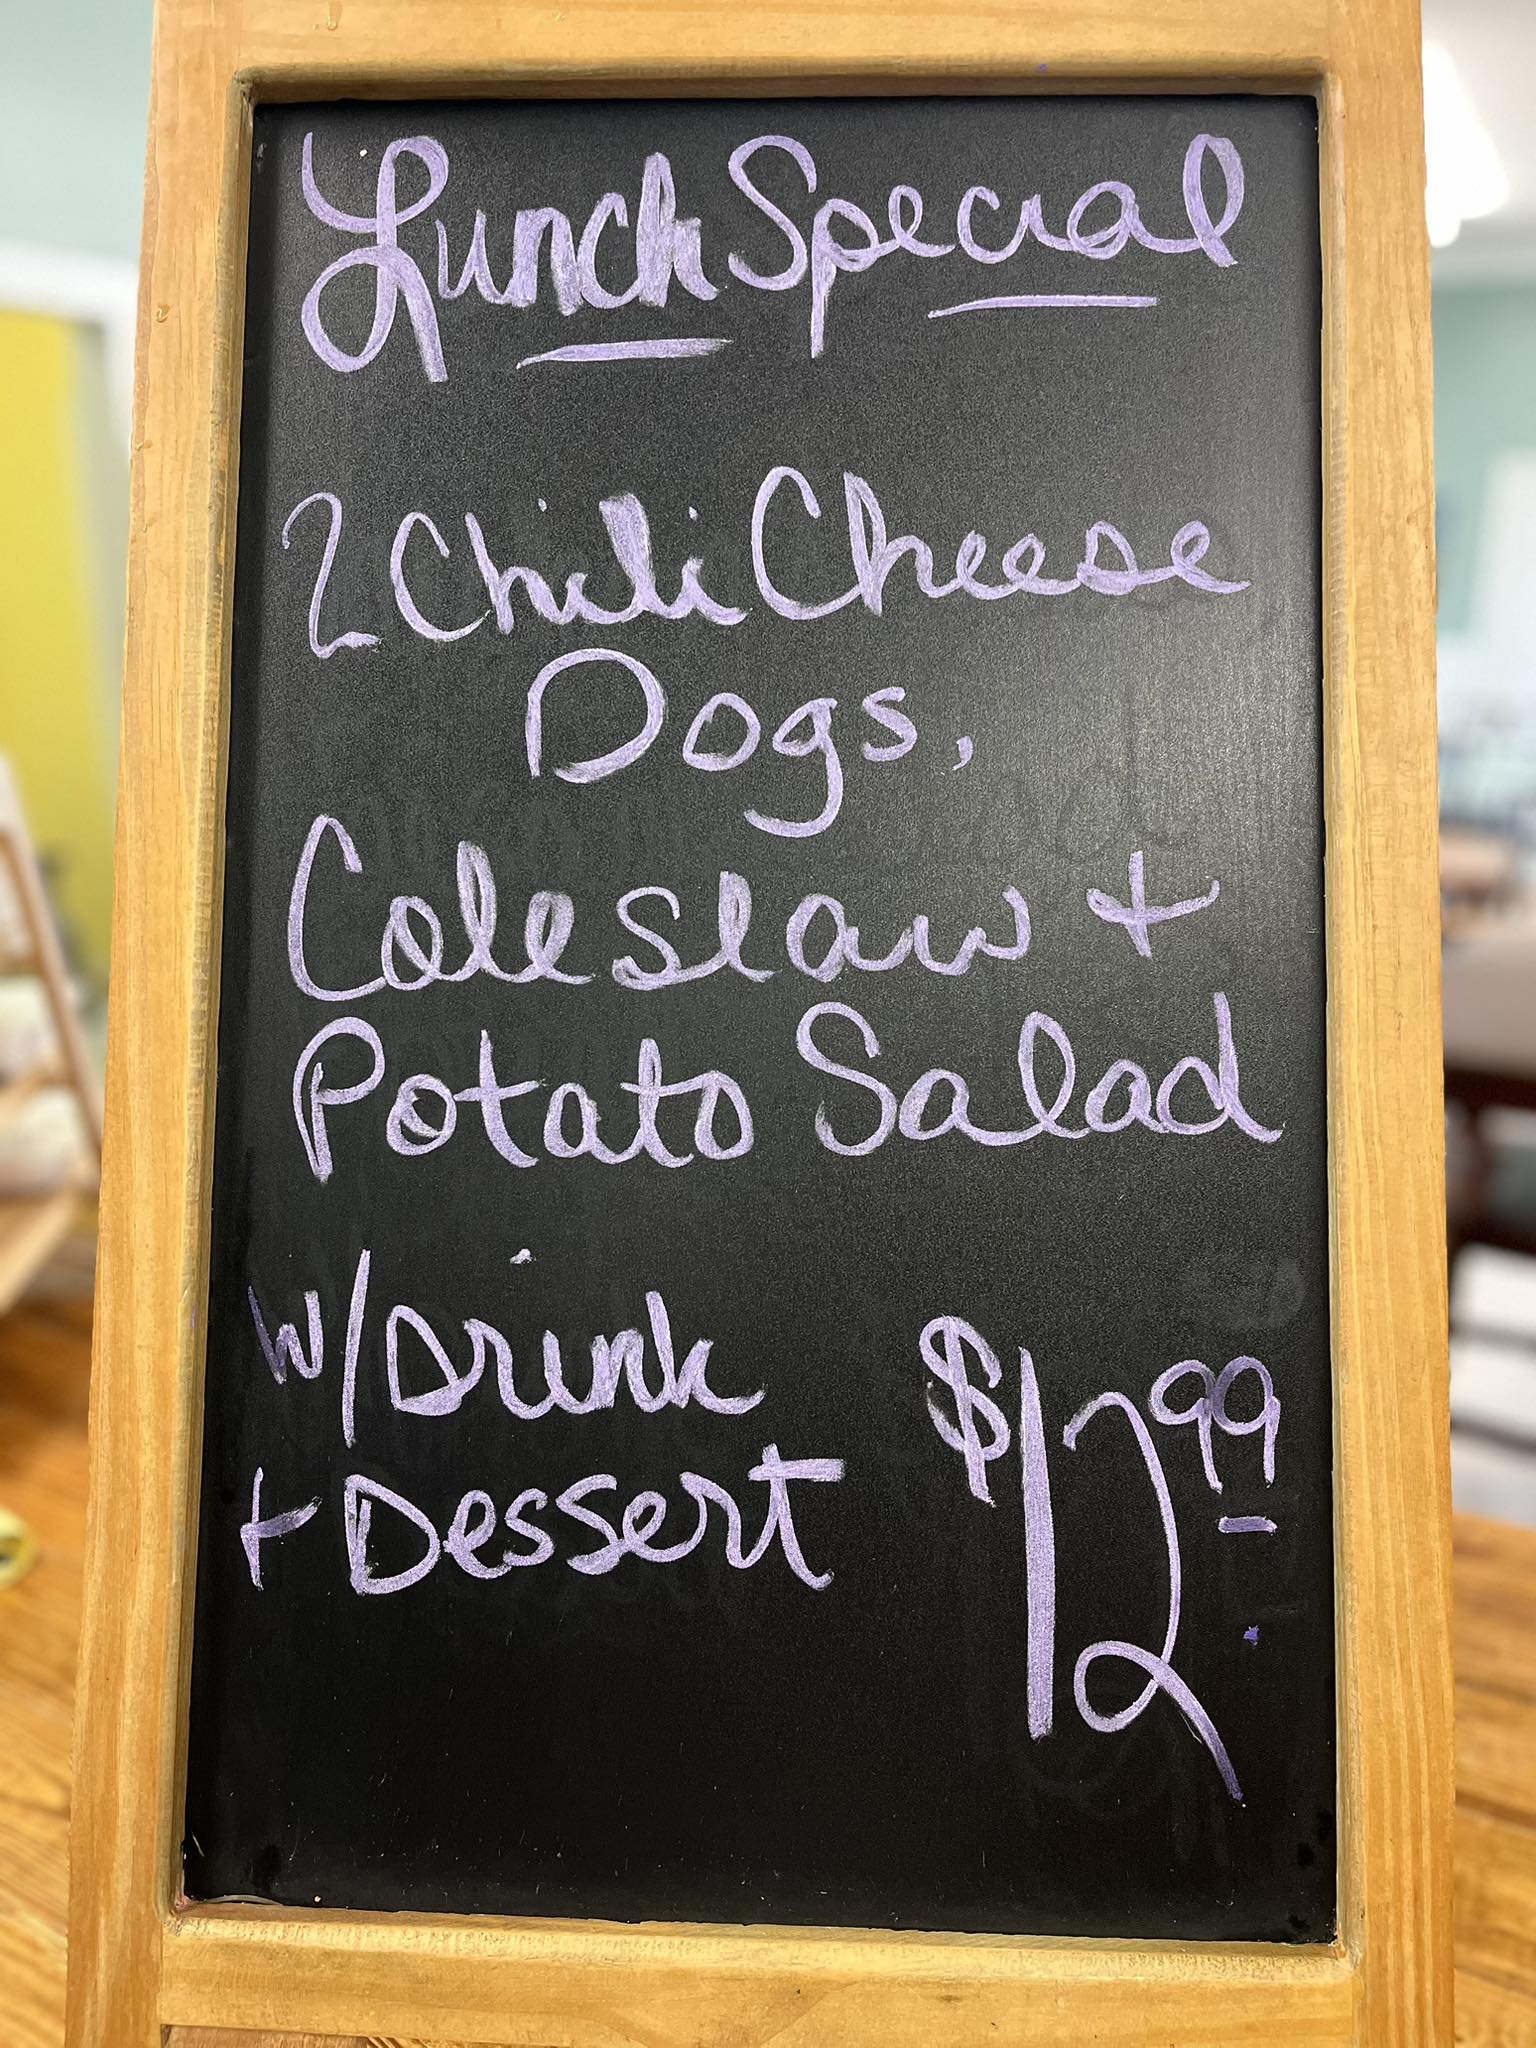 Lunch Special
2 Chili Cheese
Dogs,
Coleslaw +
Potato Salad
w/Drink
+ Dessert
$12.99